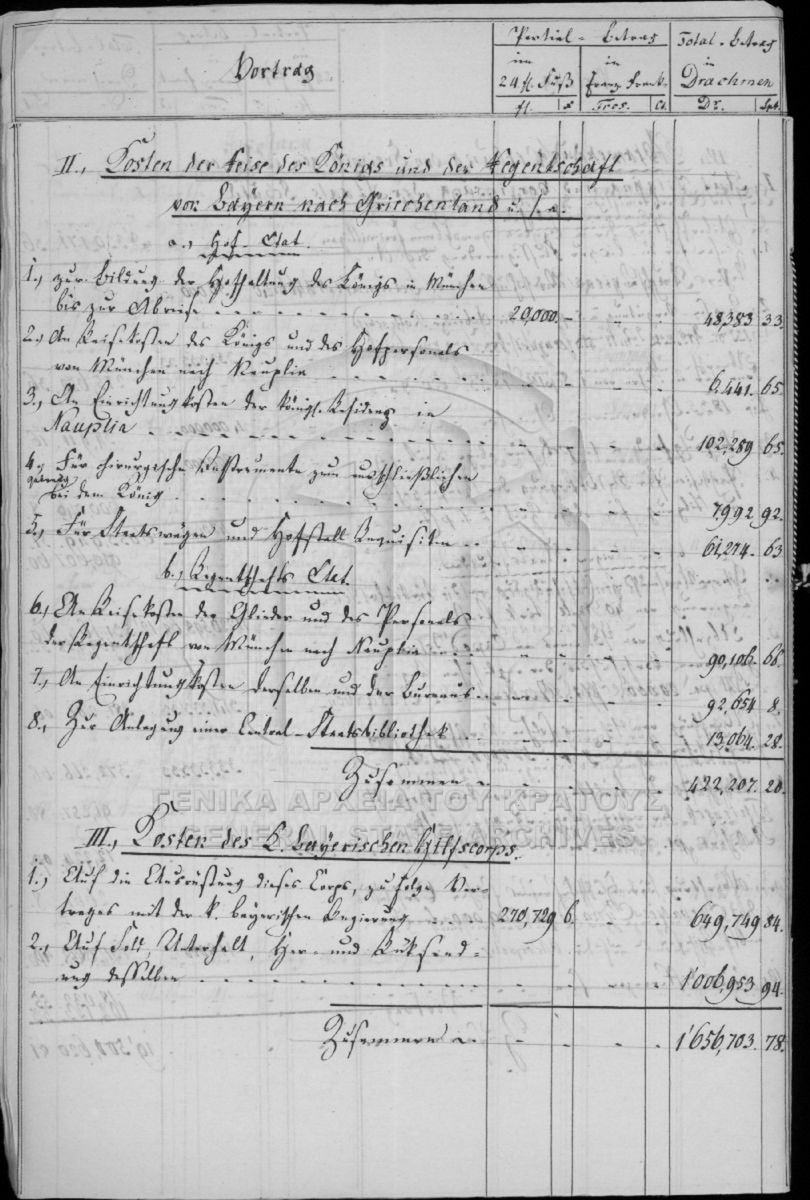 Vortrag
Partial-Betrag
Total-Betrag
im
24 fl. Fuß
in
Franz. Frank.
in
Drachmen
fl. x Frcs. Ct. Dr. Lpt.
II., Kosten der Reise des Königs und der Regentschaft
von Bayern nach Griechenland u. s. a.
a., Hof-Etat.
1., zur Bildung der Hofhaltung des Königs in München
bis zur Abreise 20,000.— 48,383 33.
2., An Reisekosten des Königs und des Hofpersonals
von München nach Nauplia 6,441. 65.
3., An Einrichtungkosten der königl. Residenz in
Nauplia 102,289 65.
4., Für chirurgische Instrumente zum ausschließlichen
Gebrauch bei dem König 7,992 92.
5., Für Staatswägen und Hofstall Requisiten 61,274. 63
b., Regentschafts Etat.
6., An Reisekosten der Glieder und des Personals
der Regentschaft von München nach Nauplia 90,106. 66.
7., An Einrichtungkosten derselben und der Bureaus 92,654 8.
8., Zur Anlegung einer Central-Staatsbibliothek 13,064. 28.
Zusammen 422,207. 20.
ΓΕΝΙΚΑ ΑΡΧΕΙΑ ΤΟΥ ΚΡΑΤΟΥΣ
GENERAL STATE ARCHIVES
III., Kosten des K. bayerischen Hilfscorps.
1., Auf die Ausrüstung dieses Corps, zu folge Ver-
trages mit der k. bayerischen Regierung 270,729 6. 649,749 84.
2., Auf Sold, Unterhalt, Her- und Rüksend-
ung desselben 1'006,953 94.
Zusammen 1'656,703. 78.